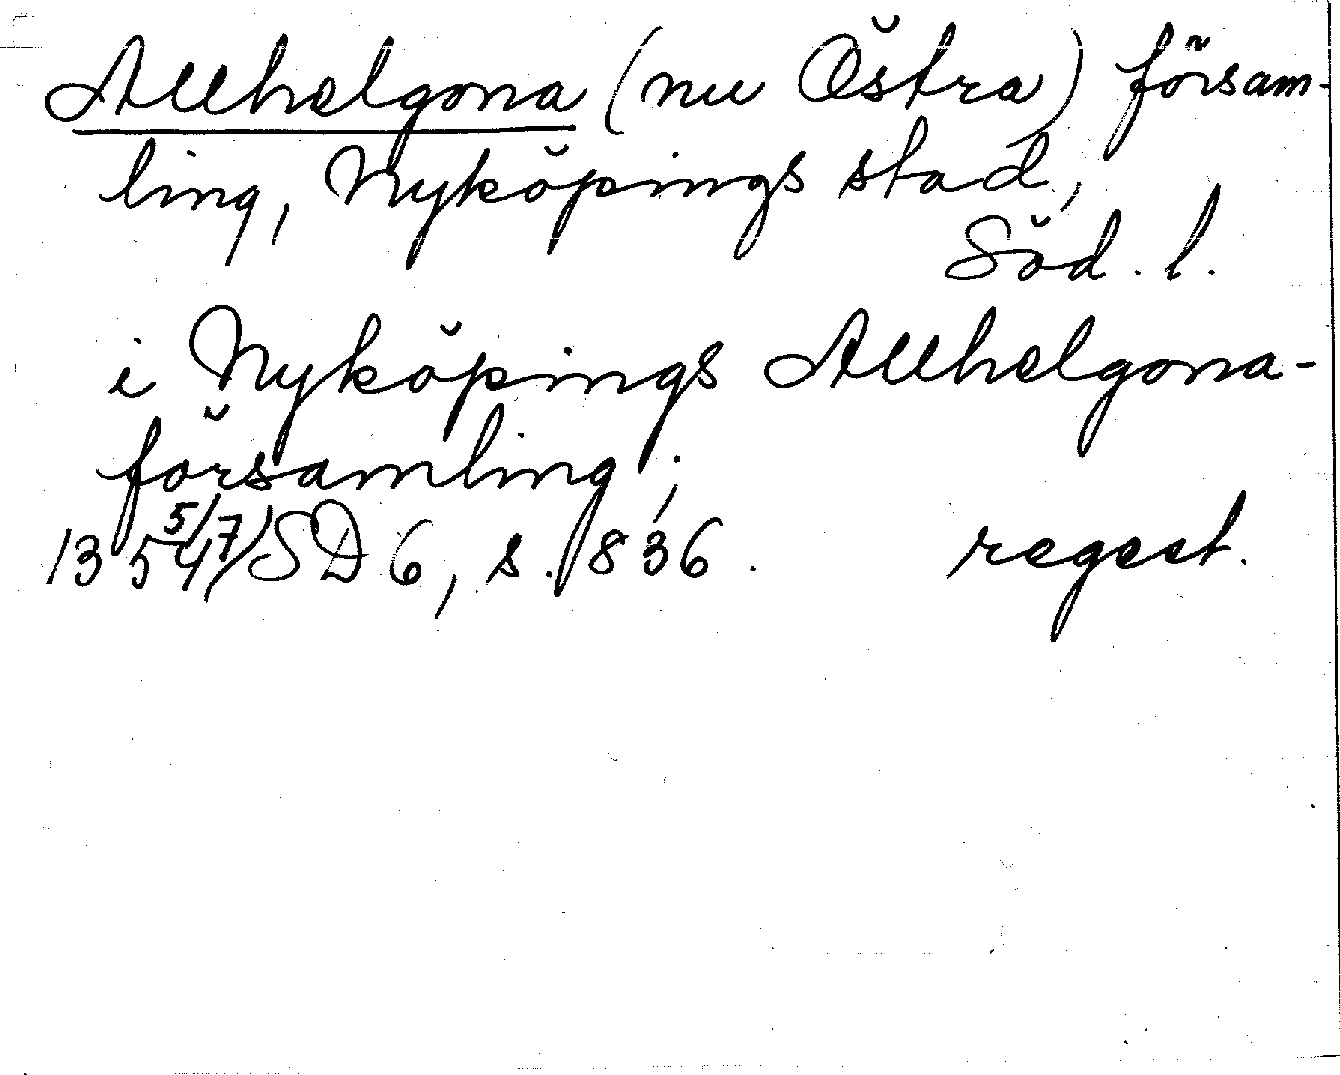 Allhelgona (nu Östra) försam-
ling, Nyköpings stad,
Söd. l.
i Nyköpings Allhelgona-
församling;
1354 5/7 SD 6, s. 836. regest.